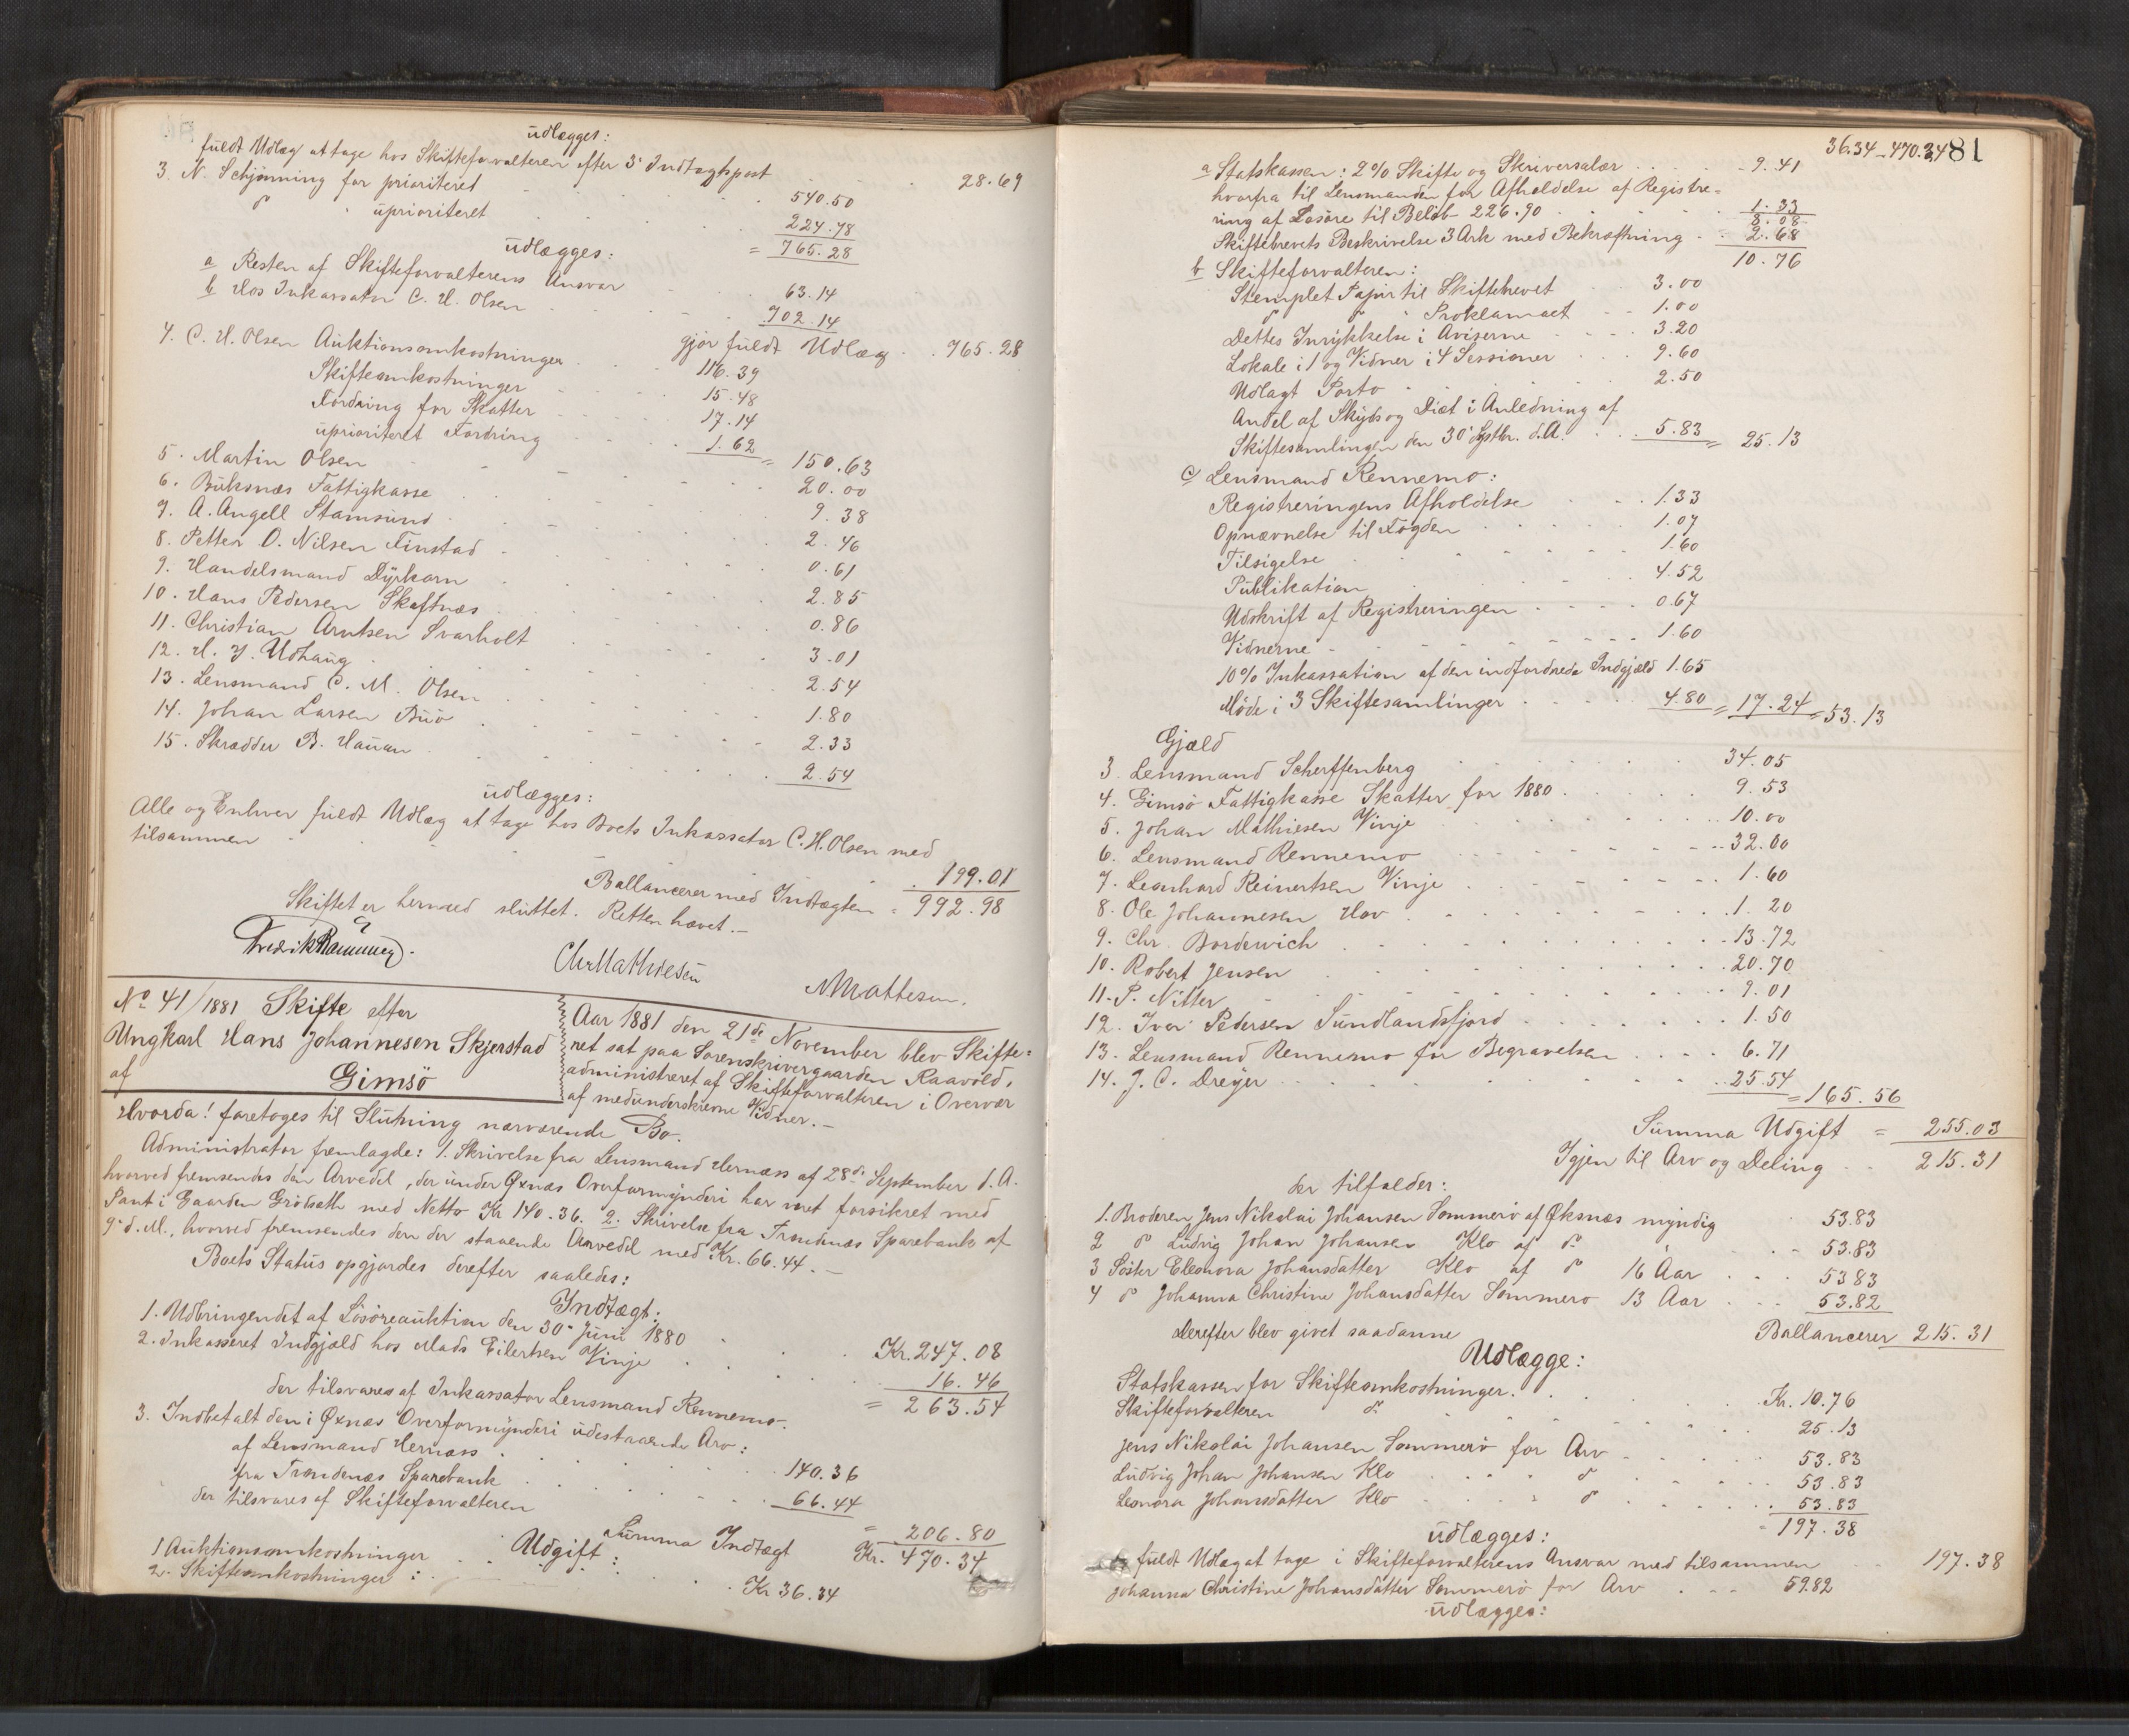 udlægges:
fuldt Udlæg at tage hos Skifteforvalteren efter 3' Indtægtspost . . 28.69
3. N. Schjønning for prioriteret . . 540.50
do uprioriteret . . 224.78
= 765.28
udlægges:
a Resten af Skifteforvalterens Ansvar . . 63.14
b Hos Inkassator C. H. Olsen . . 702.14
gjør fuldt Udlæg . . 765.28
4. C. H. Olsen Auktionsomkostninger . . 116.39
Skifteomkostninger . . 15.48
Fordring for Skatter . . 17.14
uprioriteret Fordring . . 1.62 = 150.63
5. Martin Olsen . . 20.00
6. Buksnæs Fattigkasse . . 9.38
7. A. Angell Stamsund . . 2.46
8. Petter O. Nilsen Finstad . . 0.61
9. Handelsmand Dyrkorn . . 2.85
10. Hans Pedersen Skaftnæs . . 0.86
11. Christian Arntsen Svarholt . . 3.01
12. H. J. Udhaug . . 2.54
13. Lensmand C. M. Olsen . . 1.80
14. Johan Larsen Buø . . 2.33
15. Skrædder B. Hauan . . 2.54
udlægges:
Alle og Enhver fuldt Udlæg at tage hos Boets Inkassator C. H. Olsen med
tilsammen . . 199.01
Ballancerer med Indtægten = 992.98
Skiftet er hermed sluttet. Retten hævet.—
Chr Mathiesen
No 41/1881 Skifte efter
Ungkarl Hans Johannesen Skjerstad
af Gimsö
Aar 1881 den 21de November blev Skifte=
ret sat paa Sorenskrivergaarden Raavold,
administreret af Skifteforvalteren i Overvær
af medunderskrevne Vidner.—
Hvorda! foretoges til Slutning nærværende Bo.
Administrator fremlagde: 1. Skrivelse fra Lensmand Hernæss af 28de September d. A.
hvorved fremsendes den Arvedel, der under Øxnæs Overformynderi har været forsikret med
Pant i Gaarden Grødsæth med Netto Kr 140.36. 2. Skrivelse fra Trondenæs Sparebank af
9' d. M., hvorved fremsendes den der staaende Arvedel med Kr. 66.44.—
Boets Status opgjordes derefter saaledes:
Indtægt:
1. Udbringendet af Løsøreauktion den 30' Juni 1880 . . Kr. 247.08
2. Inkasseret Indgjæld hos Mads Eilertsen Vinje . . 16.46
der tilsvares af Inkassator Lensmand Rennemo. = 263.54
3. Indbetalt den i Øxnæs Overformynderi udestaaende Arv:
af Lensmand Hernæss . . 140.36
fra Trondenæs Sparebank . . 66.44
der tilsvares af Skifteforvalteren = 206.80
Summa Indtægt Kr. 470.34
Udgift:
1 Auktionsomkostninger . . Kr 36.34
2. Skifteomkostninger:
36.34 – 470.34 81
a Statskassen: 2% Skifte og Skriversalær . . 9.41
hvorfra til Lensmanden for Afholdelse af Registre=
ring af Løsøre til Beløb 226.90 . . 1.33
8.08
Skiftebrevets Beskrivelse 3 Ark med Bekræftning . . 2.68
10.76
b Skifteforvalteren:
Stemplet Papir til Skiftebrevet . . 3.00
do " Proklamaet . . 1.00
Dettes Inrykkelse i Aviserne . . 3.20
Lokale i 1 og Vidner i 4 Sessioner . . 9.60
Udlagt Porto . . 2.50
Andel af Skyds og Diæt i Anledning af
Skiftesamlingen den 30' Septbr. d. A. . . 5.83 = 25.13
c Lensmand Rennemo:
Registreringens Afholdelse . . 1.33
Opnævnelse til Fogden . . 1.07
Tilsigelse . . 1.60
Publikation . . 4.52
Udskrift af Registreringen . . 0.67
Vidnerne . . 1.60
10% Inkassation af den indfordrede Indgjæld 1.65
Møde i 3 Skiftesamlinger . . 4.80 = 17.24 = 53.13
Gjæld
3. Lensmand Scherffenberg . . 34.05
4. Gimsö Fattigkasse Skatter for 1880 . . 9.53
5. Johan Mathiesen Vinje . . 10.00
6. Lensmand Rennemo . . 32.00
7. Leonhard Reinertsen Vinje . . 1.60
8. Ole Johannesen Hov . . 1.20
9. Chr. Bordewich . . 13.72
10. Robert Jensen . . 20.70
11. P. Nitter . . 9.01
12. Iver Pedersen Sundlandsfjord . . 1.50
13. Lensmand Rennemo for Begravelsen . . 6.71
14. J. C. Dreyer . . 25.54 = 165.56
Summa Udgift = 255.03
Igjen til Arv og Deling . . 215.31
der tilfalder:
1. Broderen Jens Nikolai Johansen Sommerø af Øksnæs myndig 53.83
2 do Ludvig Johan Johansen Klo af do . . 53.83
3 Søster Eleonora Johansdatter Klo af do 16 Aar . . 53.83
4 do Johanna Christine Johansdatter Sommerø 13 Aar . . 53.82
Ballancerer 215.31
Derefter blev givet saadanne
Udlægge:
Statskassen for Skifteomkostninger . . Kr. 10.76
Skifteforvalteren do . . 25.13
Jens Nikolai Johansen Sommerö for Arv . . 53.83
Ludvig Johan Johansen Klo do . . 53.83
Leonora Johansdatter Klo do . . 53.83
197.38
udlægges:
fuldt Udlæg at tage i Skifteforvalterens Ansvar med tilsammen . . 197.38
Johanna Christine Johansdatter Sommerö for Arv . . 53.82
udlægges: